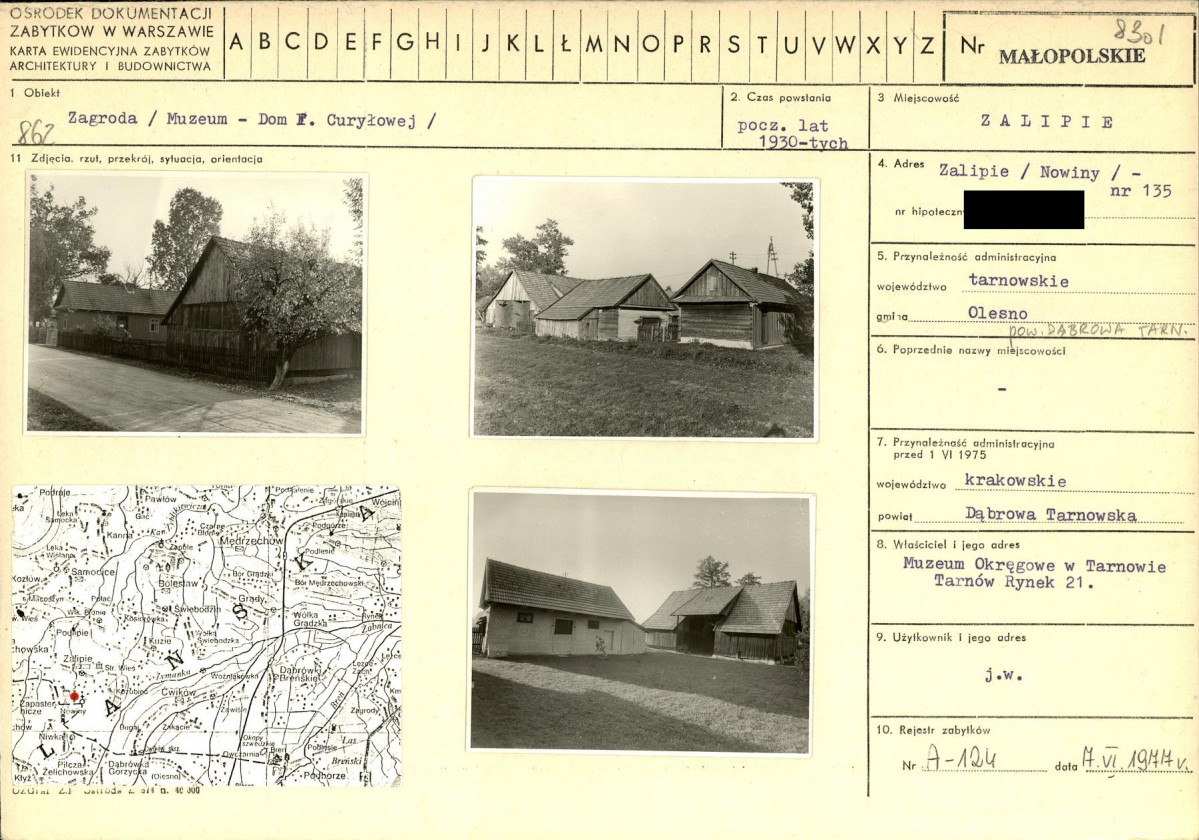 OŚRODEK DOKUMENTACJI
ZABYTKÓW W WARSZAWIE
KARTA EWIDENCYJNA ZABYTKÓW
ARCHITEKTURY I BUDOWNICTWA
A B C D E F G H I J K L Ł M N O P R S T U V W X Y Z
Nr MAŁOPOLSKIE
8301
1 Obiekt
Zagroda / Muzeum - Dom F. Curyłowej /
862
2. Czas powstania
pocz. lat
1930-tych
3 Miejscowość
ZALIPIE
11 Zdjęcia, rzut, przekrój, sytuacja, orientacja
4. Adres Zalipie / Nowiny / -
nr 135
nr hipoteczn
5. Przynależność administracyjna
województwo tarnowskie
gmina Olesno
pow. DĄBROWA TARN.
6. Poprzednie nazwy miejscowości
-
7. Przynależność administracyjna
przed 1 VI 1975
województwo krakowskie
powiat Dąbrowa Tarnowska
8. Właściciel i jego adres
Muzeum Okręgowe w Tarnowie
Tarnów Rynek 21.
9. Użytkownik i jego adres
j.w.
10. Rejestr zabytków
Nr A-124 data 7.VI.1977r.
Podraje
Pawłów
Podlesie
Łęka
Samocka
Gać
Kanna
Mędrzechów
Podgórze
Podlesie
Łęka
Samocice
Bolesław
Bór Grądzki
Bór Mędrzechowski
Kozłów
Grądy
Świebodzin
Wólka
Grądzka
Żabnica
Podlipie
Kuzie
Wólka
Świebodzka
Zalipie
Str. Wieś
Żymanka
Woźniakówka
Dąbrówki
Breńskie
Ćwików
Breń
Nowiny
Zagrody
Niwka
Bugaj
Las
Breński
Okopy
szwedzkie
Podlesie
Pilcza
Żelichowska
Dąbrówka
Gorzycka
(Olesno)
Podborze
Kłyż
L A N S K A